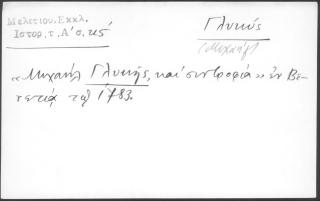 Μελετίου, Εκκλ.
Ιστορ, τ. Α΄ σ. κς΄
Γλυκύς
(Μιχαήλ)
«Μιχαήλ Γλυκής, καί συντροφία» ἐν Βε-
νετίᾳ τῷ 1783.